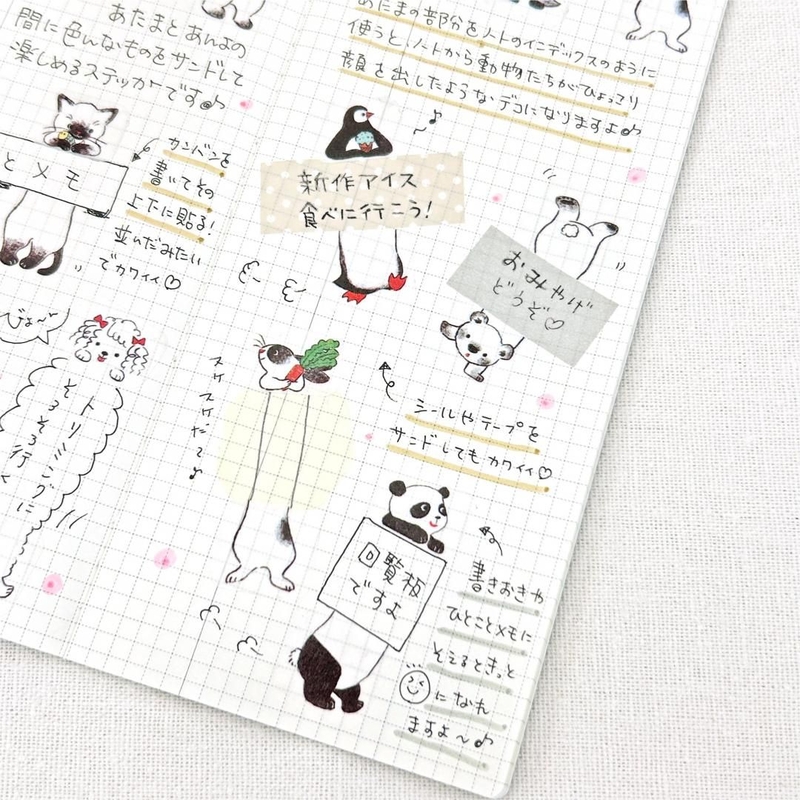 あたまとあんよの
間に色んなものをサンドして
楽しめるステッカーです♪
あたまの部分をノートのインデックスのように
使うと、ノートから動物たちがひょっこり
顔を出したようなデコになりますよ♪
とメモ
カンバンを
書いてその
上下に貼る!
並んだみたい
でカワイイ♡
新作アイス
食べに行こう!
おみやげ
どうぞ♡
シールやテープを
サンドしてもカワイイ♡
トリミングに
そろそろ行く
回覧板
ですよ
書きおきや
ひとことメモに
そえるときっと
になれ
ますよ〜♪